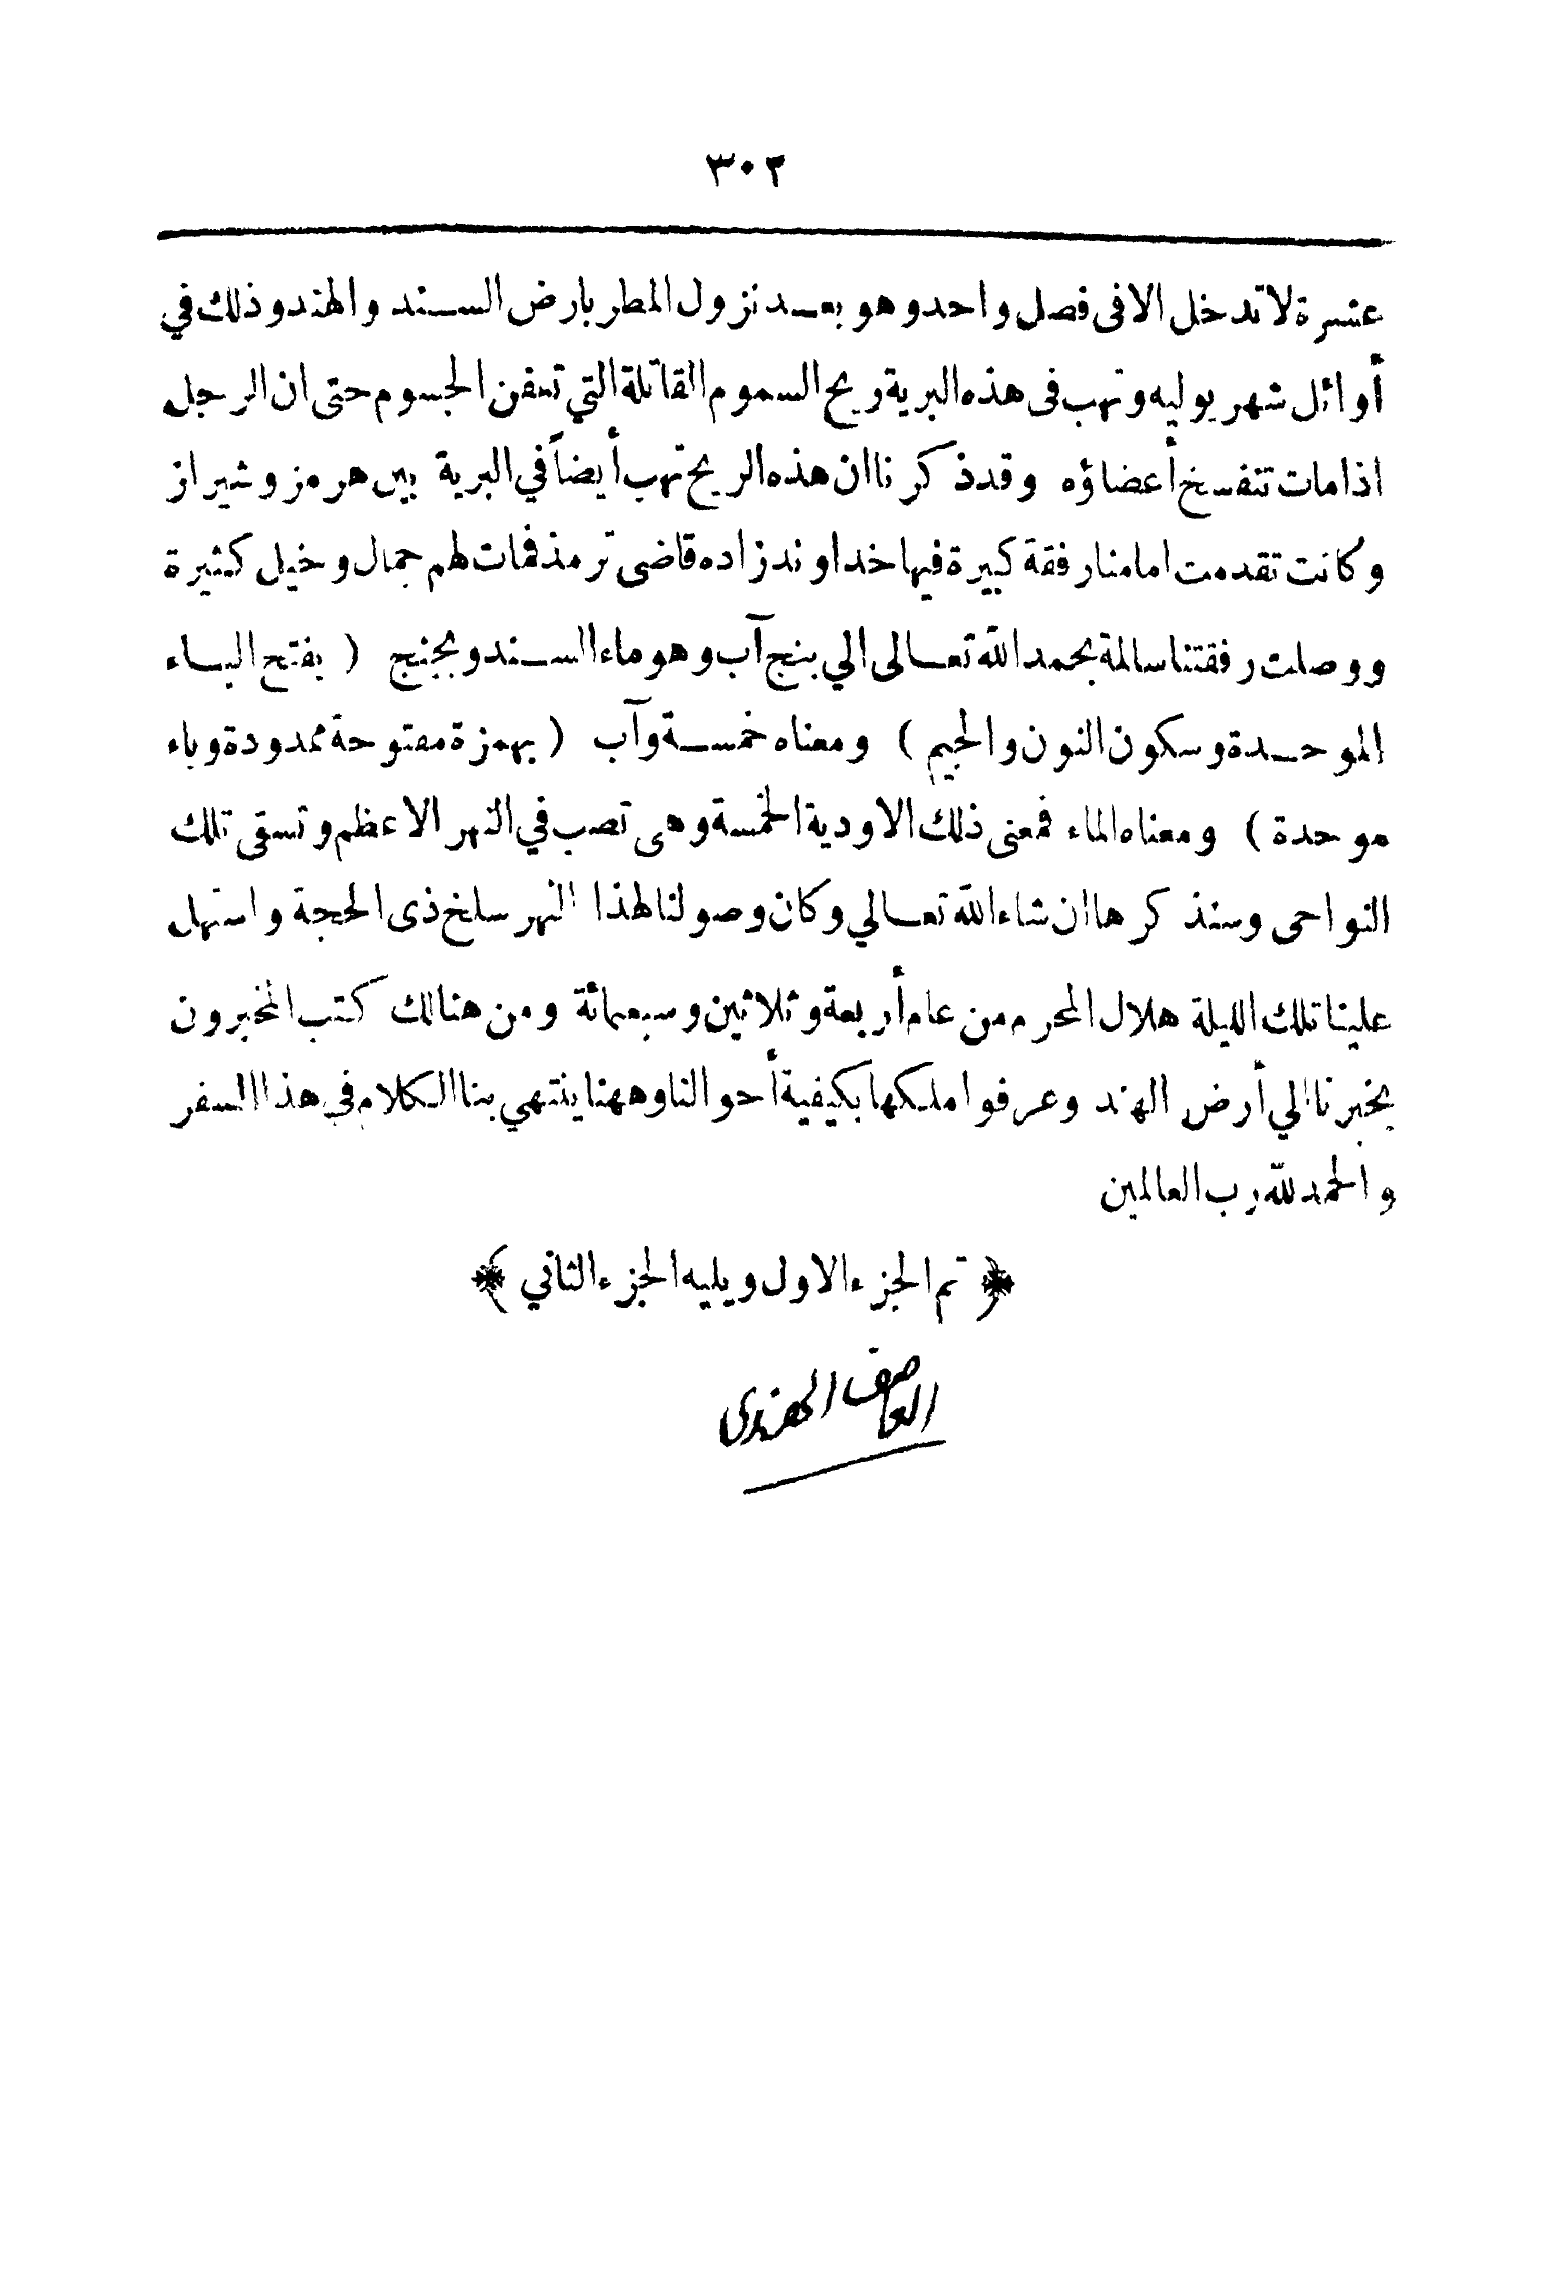 ٣٠٢
عشرة لا تدخل الا في فصل واحد وهو بعد نزول المطر بارض السند والهند وذلك في
أوائل شهر يوليه وتهب في هذه البرية ريح السموم القاتلة التي تعفن الجسوم حتى ان الرجل
اذا مات تتفسخ أعضاؤه وقد ذكرنا ان هذه الريح تهب أيضاً في البرية بين هرمز وشيراز
وكانت تقدمت امامنا رفقة كبيرة فيها خداوند زاده قاضى ترمذ فمات لهم جمال وخيل كثيرة
ووصلت رفقتنا سالمة بحمد الله تعالى الي بنج آب وهو ماء السند وبجنج ( بفتح الباء
الموحدة وسكون النون والجيم ) ومعناه خمسة وآب ( بهمزة مفتوحة ممدودة وباء
موحدة ) ومعناه الماء فمعنى ذلك الاودية الخمسة وهى تصب في النهر الاعظم وتسقى تلك
النواحى وسنذكرها ان شاء الله تعالي وكان وصولنا لهذا النهر سلخ ذى الحجة واستهل
علينا تلك الليلة هلال المحرم من عام أربعة وثلاثين وسبعمائة ومن هنالك كتب المخبرون
بخبرنا الي أرض الهند وعرفوا ملكها بكيفية أحوالنا وههنا ينتهي بنا الكلام في هذا السفر
والحمد لله رب العالمين
﴿ تم الجزء الاول ويليه الجزء الثاني ﴾
العاصف الهندى